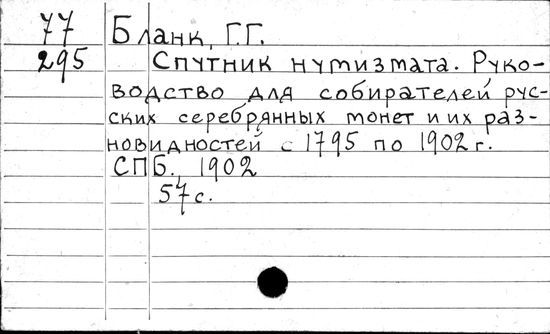 77 Бланк, Г.Г.
295 Спутник нумизмата. Руко-
водство для собирателей рус-
ских серебрянных монет и их раз-
новидностей с 1795 по 1902 г.
СПБ., 1902
57 с.